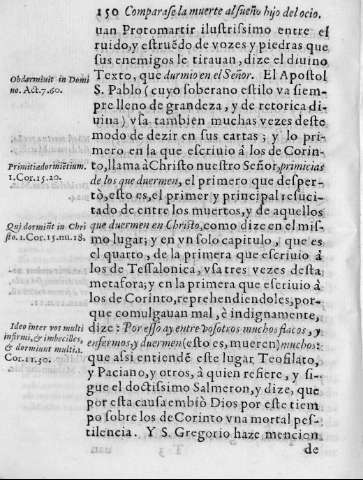 150 Comparase la muerte al sueño hijo del ocio.
uan Protomartir ilustrissimo entre el
ruido, y estruẽdo de vozes y piedras que
sus enemigos le tirauan, dize el diuino
Texto, que durmio en el Señor. El Apostol
S. Pablo (cuyo soberano estilo va siem-
pre lleno de grandeza, y de retorica di-
uina) vsa tambien muchas vezes deste
modo de dezir en sus cartas; y lo pri-
mero en la que escriuio à los de Corin-
to, llama à Christo nuestro Señor, primicias
de los que duermen, el primero que desper-
tò, esto es, el primer y principal resuci-
tado de entre los muertos, y de aquellos
que duermen en Christo, como dize en el mis-
mo lugar; y en vn solo capitulo, que es
el quarto, de la primera que escriuio à
los de Tessalonica, vsa tres vezes desta
metafora; y en la primera que escriuio à
los de Corinto, reprehendiendoles, por-
que comulgauan mal, è indignamente,
dize: Por esso ay entre vosotros muchos flacos, y
enfermos, y duermen (esto es, mueren) muchos:
que assi entiendẽ este lugar Teofilato,
y Paciano, y otros, à quien refiere, y si-
gue el doctissimo Salmeron, y dize, que
por esta causa embiò Dios por este tiem
po sobre los de Corinto vna mortal pes-
tilencia. Y S. Gregorio haze mencion
de
Obdormiuit in Domi
no. Act. 7. 60.
Primitiæ dormientium.
1. Cor. 15. 20.
Qui dormiũt in Chri
sto. 1. Cor. 15. nu. 18.
Ideo inter vos multi
infirmi, & imbecilles,
& dormiunt multi. 1.
Cor. 11. 30.